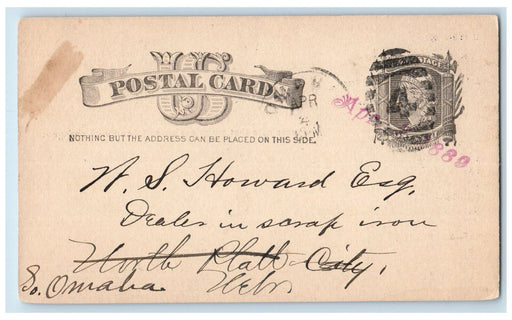 US
POSTAL CARDS
POSTAGE
APR
4
NOTHING BUT THE ADDRESS CAN BE PLACED ON THIS SIDE.
Apr 1889
W. S. Howard Esq.
Dealer in scrap iron
North Platt City,
So. Omaha Nebr